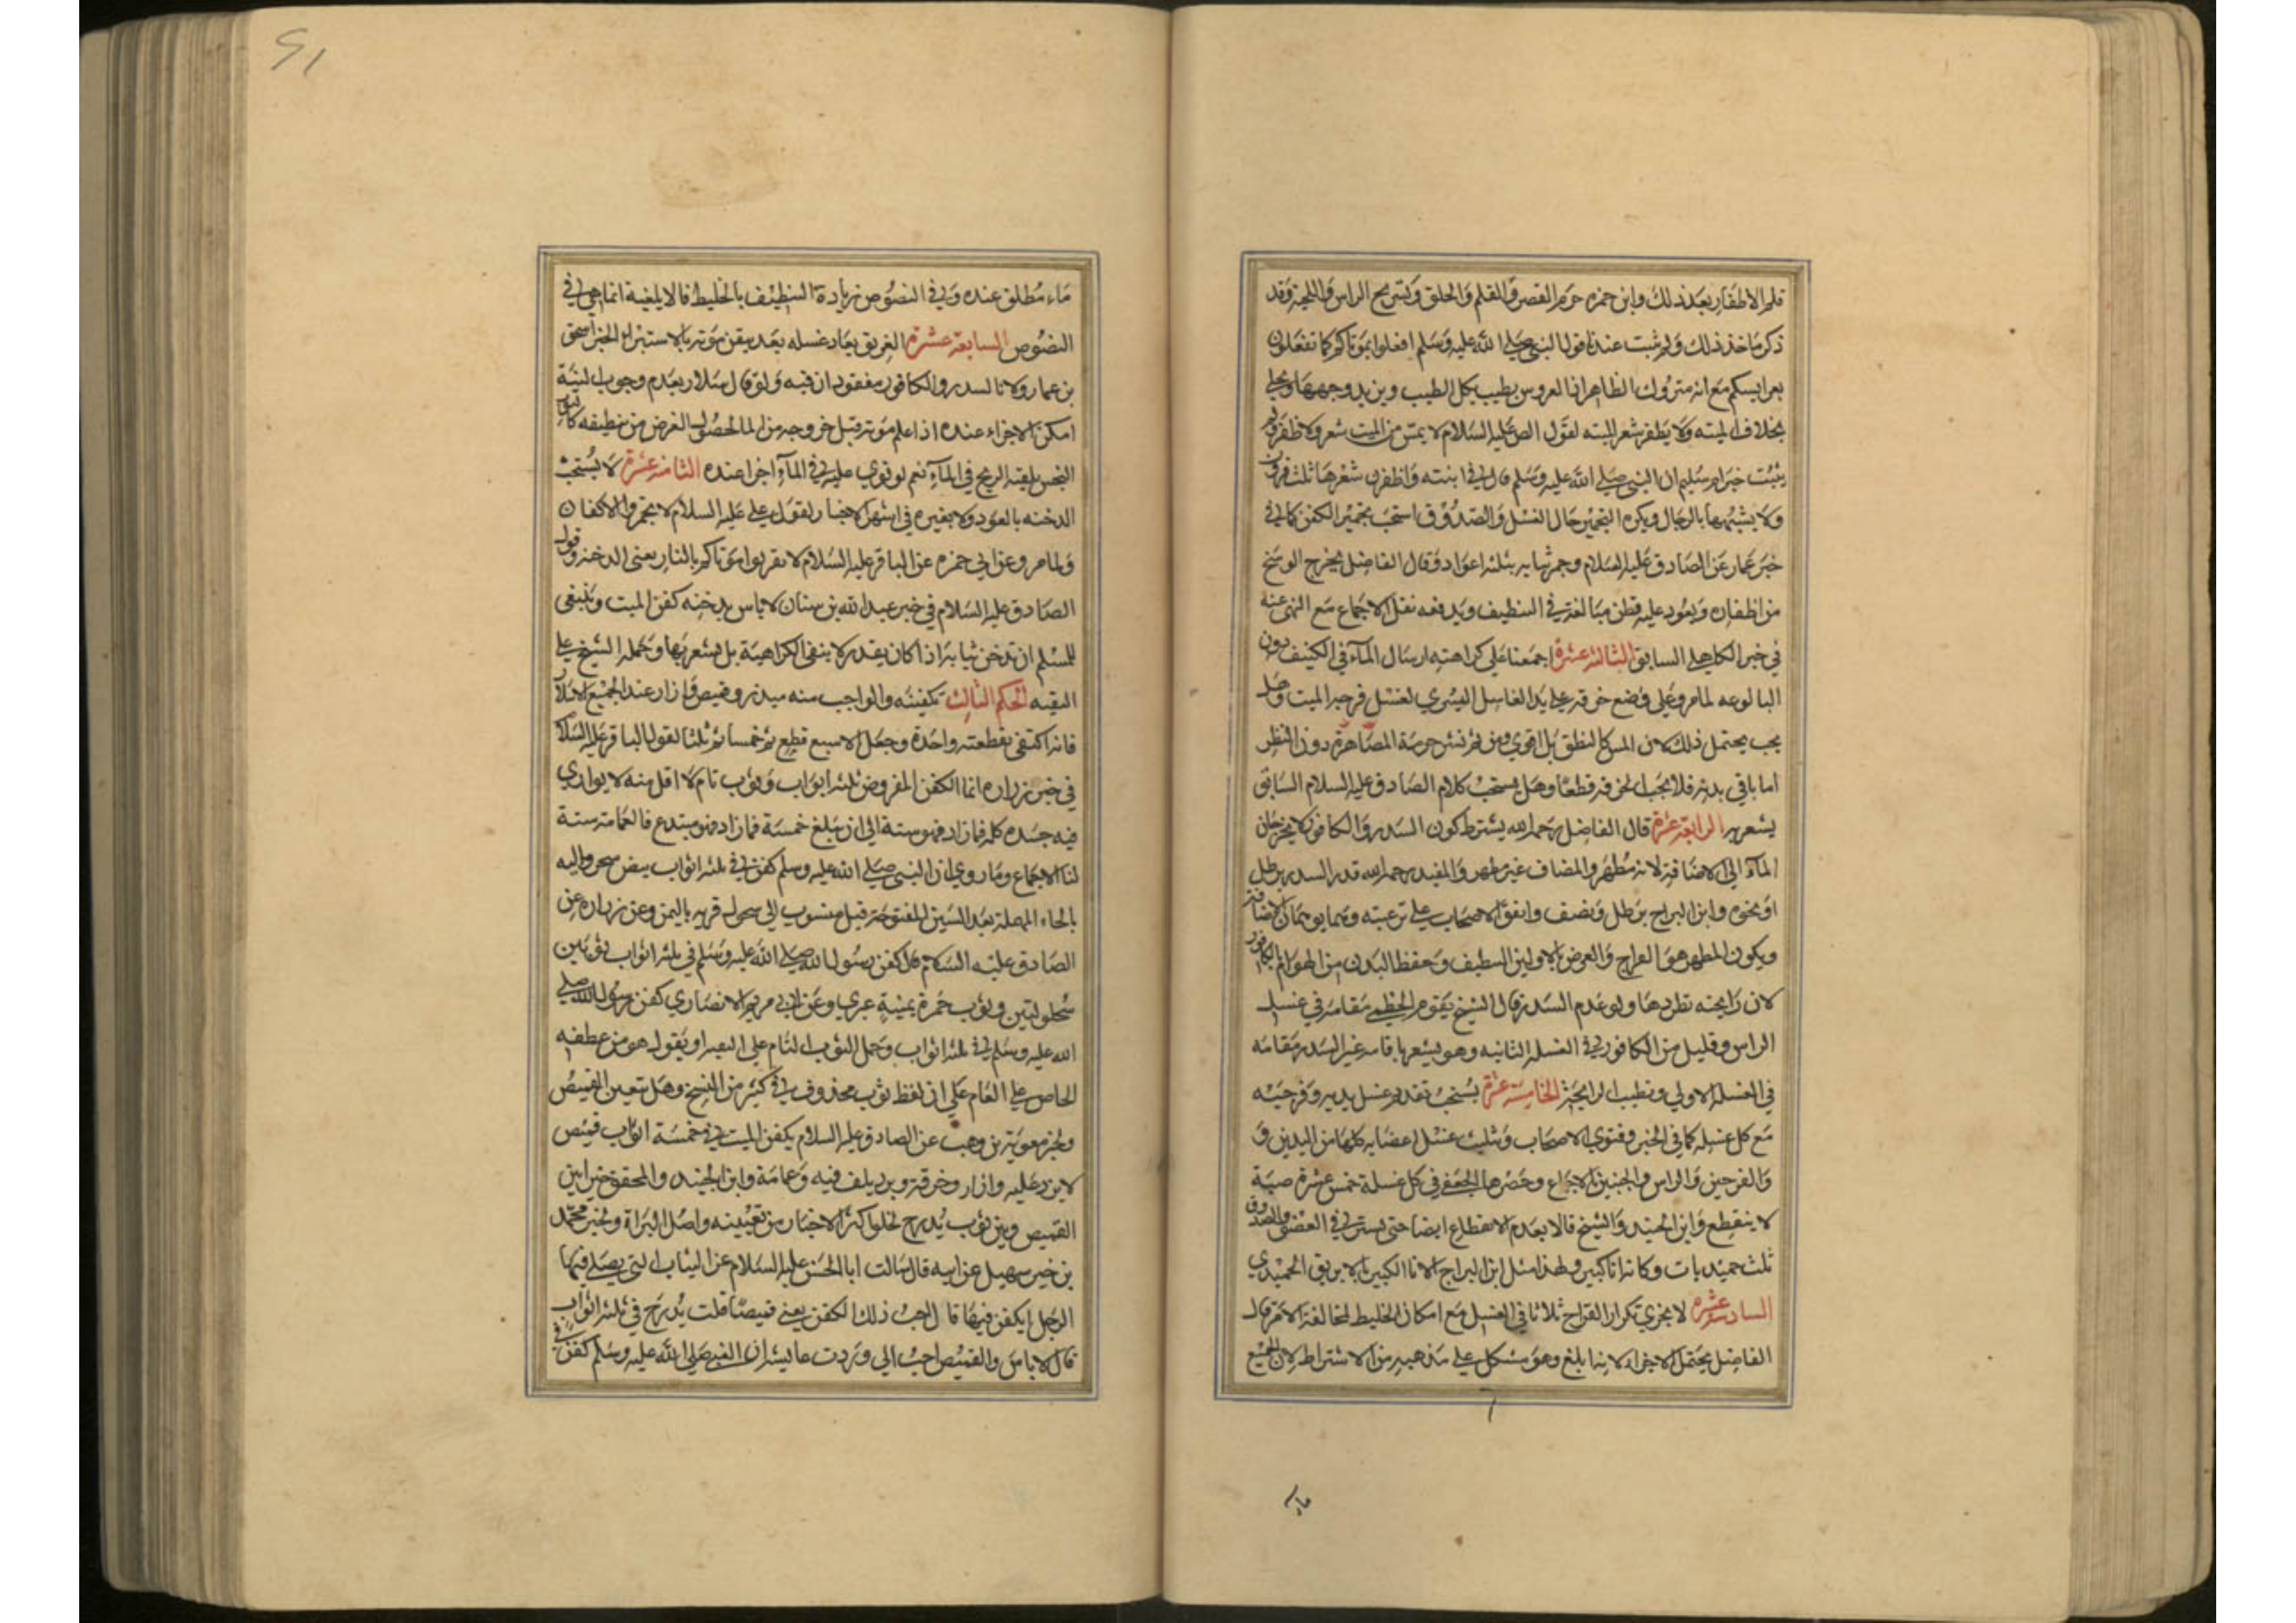 قلم الاظفار بعد ذلك وابن حمزه حرم القص والقلم والحلق وتسريح الراس واللحية وقد
ذكر ماخذ ذلك ولم يثبت عندنا قول النبي صلى الله عليه وسلم افعلوا بموتاكم كما تفعلون
بعرايسكم مع انه متروك الظاهر اذ العروس يطيب بكل الطيب ويزيد وجهها ويحلى
بخلاف الميته ولا يظفر شعر الميته لقول الص عليه السلام لا يمس من الميت شعر ولا ظفر ولم
يثبت خبر ام سليم ان النبي صلى الله عليه وسلم قال في ابنته واظفرن شعرها ثلث قرون
ولا يشبهها بالرجال ويكره التجمير حال الغسل والصدوق استحب تجمير الكفن كما في
خبر عمار عن الصادق عليه السلام وجمر ثيابه بثلثه اعواد وقال الفاضل يخرج الوسخ
من اظفاره وبعود عليه قطن مبالغة في التنظيف ويدفعه نقل الاجماع مع النهي عنه
في خبر الكاهلي السابق الثالثة عشرة اجمعنا على كراهته ارسال الماء في الكنيف دون
البالوعه لما مر وعلى وضع خرقه على يد الغاسل اليسرى لغسل فرجي الميت وهل
يجب يحتمل ذلك لان المس كالنظر بل اقوى ومن ثم نشر حرمة المصاهرة دون النظر
اما باقي بدنه فلا يجب الخرقه قطعا وهل يستحب كلام الصادق عليه السلام السابق
يشعر به الرابعة عشرة قال الفاضل رحمه الله يشترط كون السدر والكافور لا يخرجان
الماء الى الاضافة لانه مطهر والمضاف غير مطهر والمفيد رحمه الله قدر السدر برطل
او نحوه وابن البراج برطل ونصف واتفق الاصحاب على ترغيته وهما يوهمان الاضافة
ويكون المطهر هو القراح والغرض بالاولين التنظيف وحفظ البدن من الهوام بالكافور
لان رايحته تطردها ولو عدم السدر قال الشيخ يقوم الخطمي مقامه في غسل
الراس وقليل من الكافور في الغسله الثانيه وهو يشعر باقامه غير السدر مقامه
في الغسله الاولى وتطيب الرايحة الخامسة عشرة يستحب تقديم غسل يديه وفرجيه
مع كل غسله كما في الخبر وفتوى الاصحاب وتثليث غسل اعضايه كلها من اليدين و
والفرجين والراس والجنبين بالاجماع وحصرها الجعفي في كل غسلة خمس عشرة صبة
لا ينقطع وابن الجنيد والشيخ قالا بعدم الانقطاع ايضا حتى يستوفي العضو والصدوق
ثلث حميديات وكانه اناء كبير ولهذا مثل ابن البراج الاناء الكبير بالابريق الحميدي
السادسة عشرة لا يجزي تكرار القراح ثلاثا في الغسل مع امكان الخليط لمخالفة الامر قال
الفاضل يحتمل الاجزاء لانه ابلغ وهو مشكل على مذهبه من الاشتراط لان الجميع
ماء مطلق عنده وفي النصوص زيادة التنظيف بالخليط فالابلغية انما هي في
النصوص السابعة عشرة الغريق يعاد غسله بعد تيقن موته بالاستبراء لخبر اسحق
بن عمار ولان السدر والكافور مفقودان فيه ولو قال سلار بعدم وجوب النية
امكن الاجزاء عنده اذا علم موته قبل خروجه من الماء لحصول الغرض من تنظيفه كالثوب
النجس يلقيه الريح في الماء نعم لو نوى عليه في الماء اجزا عنده الثامنة عشرة لا يستحب
الدخنه بالعود ولا بغيره في اشهر الاخبار لقول علي عليه السلام لا تجمروا الاكفان
ولما مر وعن ابي حمزه عن الباقر عليه السلام لا تقربوا موتاكم بالنار يعني الدخنه وقول
الصادق عليه السلام في خبر عبد الله بن سنان لا باس بدخنه كفن الميت وينبغي
للمسلم ان يدخن ثيابه اذا كان يقدر لا ينفي الكراهية بل يشعر بها وحمله الشيخ على
التقيه الحكم الثالث تكفينه والواجب منه ميزر وقميص وازار عند الجميع الا سلار
فانه اكتفى بقطعة واحدة وجعل الاسبع قطع ثم خمسا ثم ثلثا لقول الباقر عليه السلام
في خبر زراره انما الكفن المفروض ثلثه اثواب وثوب تام لا اقل منه لا يوارى
فيه جسده كله فما زاد فهو سنة الى ان يبلغ خمسة فما زاد فهو مبتدع فالعمامة سنة
لنا الاجماع وما روي ان النبي صلى الله عليه وسلم كفن في ثلثه اثواب بيض سحوليه
بالحاء المهملة بعد السين المفتوحة قيل منسوب الى سحول قريه باليمن وعن زراره عن
الصادق عليه السلام قال كفن رسول الله صلى الله عليه وسلم في ثلثه اثواب ثوبين
سحوليين وثوب حمرة يمنية عبري وعن ابي مريم الانصاري كفن رسول الله صلى
الله عليه وسلم في ثلثه اثواب وحمل الثوب التام على التقيه او يقول هو من عطف
الخاص على العام على ان لفظ ثوب محذوف في كثير من النسخ وهل تعين القميص
ولخبر معوية بن وهب عن الصادق عليه السلام يكفن الميت في خمسة اثواب قميص
لا يزر عليه وازار وخرقة وبرد يلف فيه وعمامة وابن الجنيد والمحقق خيرا بين
القميص وبين ثوب يدرج لخلو اكثر الاخبار من تعيينه واصل البراة ولخبر محمد
بن سهيل عن ابيه قال سالت ابا الحسن عليه السلام عن الثياب التي يصلى فيها
الرجل ايكفن فيها قال احب ذلك الكفن يعني قميصا قلت يدرج في ثلثه اثواب
قال لا باس والقميص احب الي وردت عايشه ان النبي صلى الله عليه وسلم كفن في